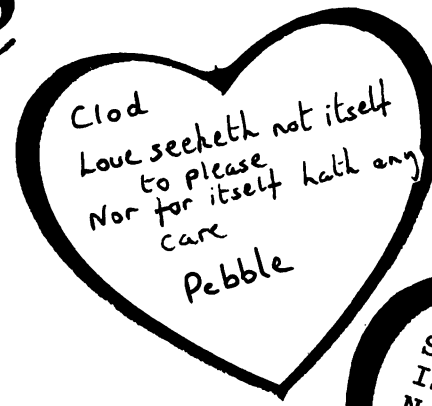 Clod
Love seeketh not itself
to please
Nor for itself hath any
care
Pebble